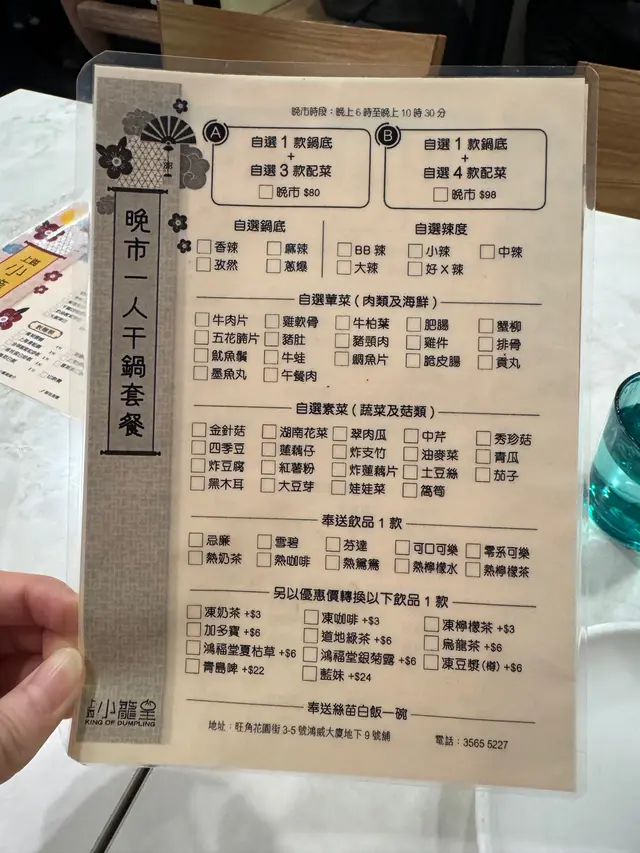 晚市一人干鍋套餐
晚市時段：晚上 6 時至晚上 10 時 30 分
A
自選 1 款鍋底
+
自選 3 款配菜
晚市 $80
B
自選 1 款鍋底
+
自選 4 款配菜
晚市 $98
自選鍋底
香辣 麻辣
孜然 蔥爆
自選辣度
BB 辣 小辣 中辣
大辣 好 X 辣
自選葷菜 ( 肉類及海鮮 )
牛肉片 雞軟骨 牛柏葉 肥腸 蟹柳
五花腩片 豬肚 豬頸肉 雞件 排骨
魷魚鬚 牛蛙 鯛魚片 脆皮腸 貢丸
墨魚丸 午餐肉
自選素菜 ( 蔬菜及菇類 )
金針菇 湖南花菜 翠肉瓜 中芹 秀珍菇
四季豆 蓮藕仔 炸支竹 油麥菜 青瓜
炸豆腐 紅薯粉 炸蓮藕片 土豆絲 茄子
黑木耳 大豆芽 娃娃菜 萵筍
奉送飲品 1 款
忌廉 雪碧 芬達 可口可樂 零系可樂
熱奶茶 熱咖啡 熱鴛鴦 熱檸檬水 熱檸檬茶
另以優惠價轉換以下飲品 1 款
凍奶茶 +$3 凍咖啡 +$3 凍檸檬茶 +$3
加多寶 +$6 道地綠茶 +$6 烏龍茶 +$6
鴻福堂夏枯草 +$6 鴻福堂銀菊露 +$6 凍豆漿 (樽) +$6
青島啤 +$22 藍妹 +$24
奉送絲苗白飯一碗
地址：旺角花園街 3-5 號鴻威大廈地下 9 號舖 電話：3565 5227
小龍皇
KING OF DUMPLING